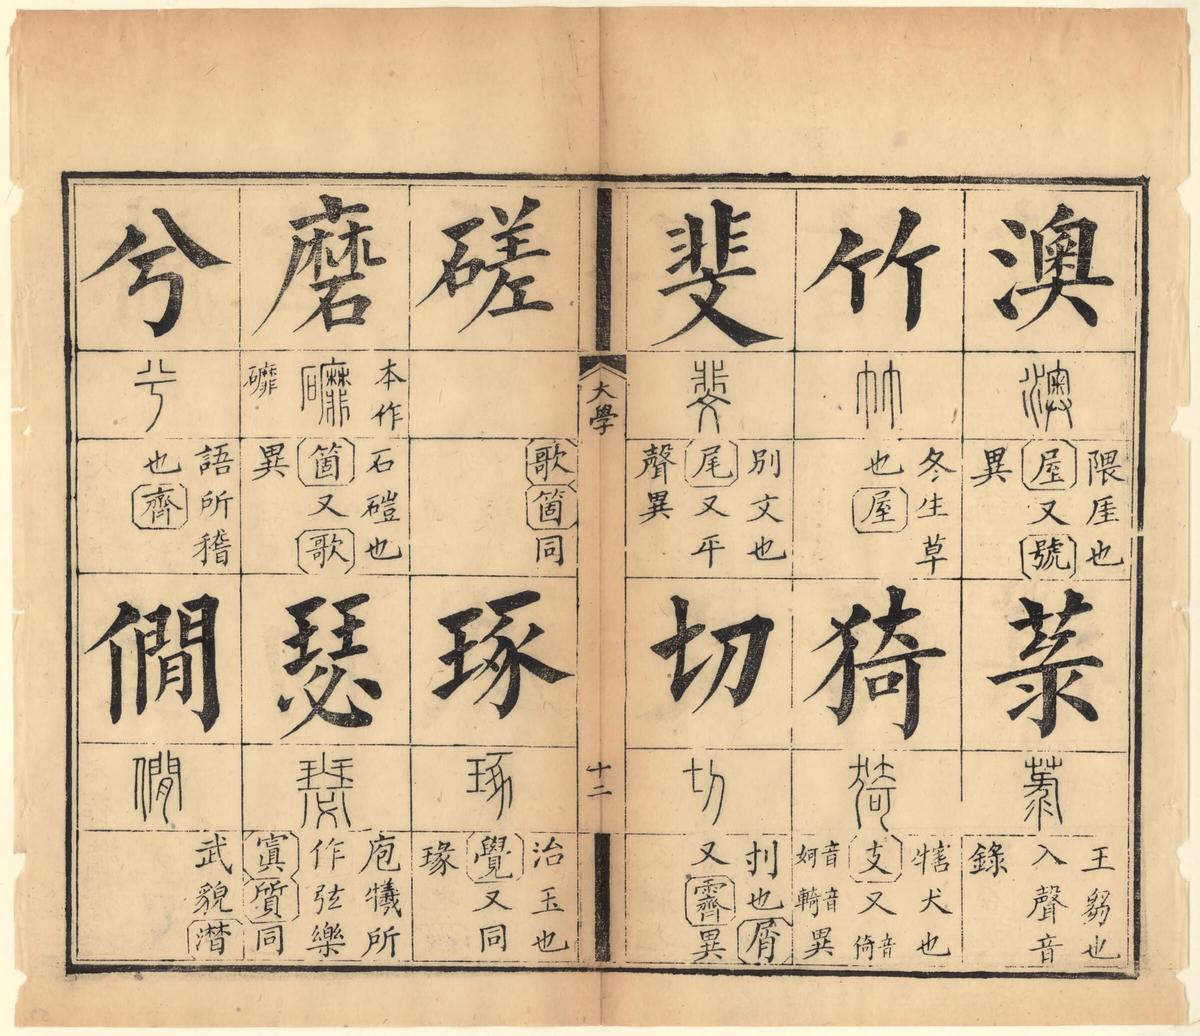 澳
澳
隈厓也
屋又號
異
菉
菉
王芻也
入聲音
錄
竹
竹
冬生草
也屋
猗
猗
犗犬也
支又音倚
音妸音輢異
斐
斐
別文也
尾又平
聲異
切
切
刌也屑
又霽異
大學
十二
磋
歌箇同
琢
琢
治玉也
覺又同
瑑
磨
本作
䃺
礳
石磑也
箇又歌
異
瑟
瑟
庖犧所
作弦樂
寘質同
兮
兮
語所稽
也齊
僩
僩
武貌
潸